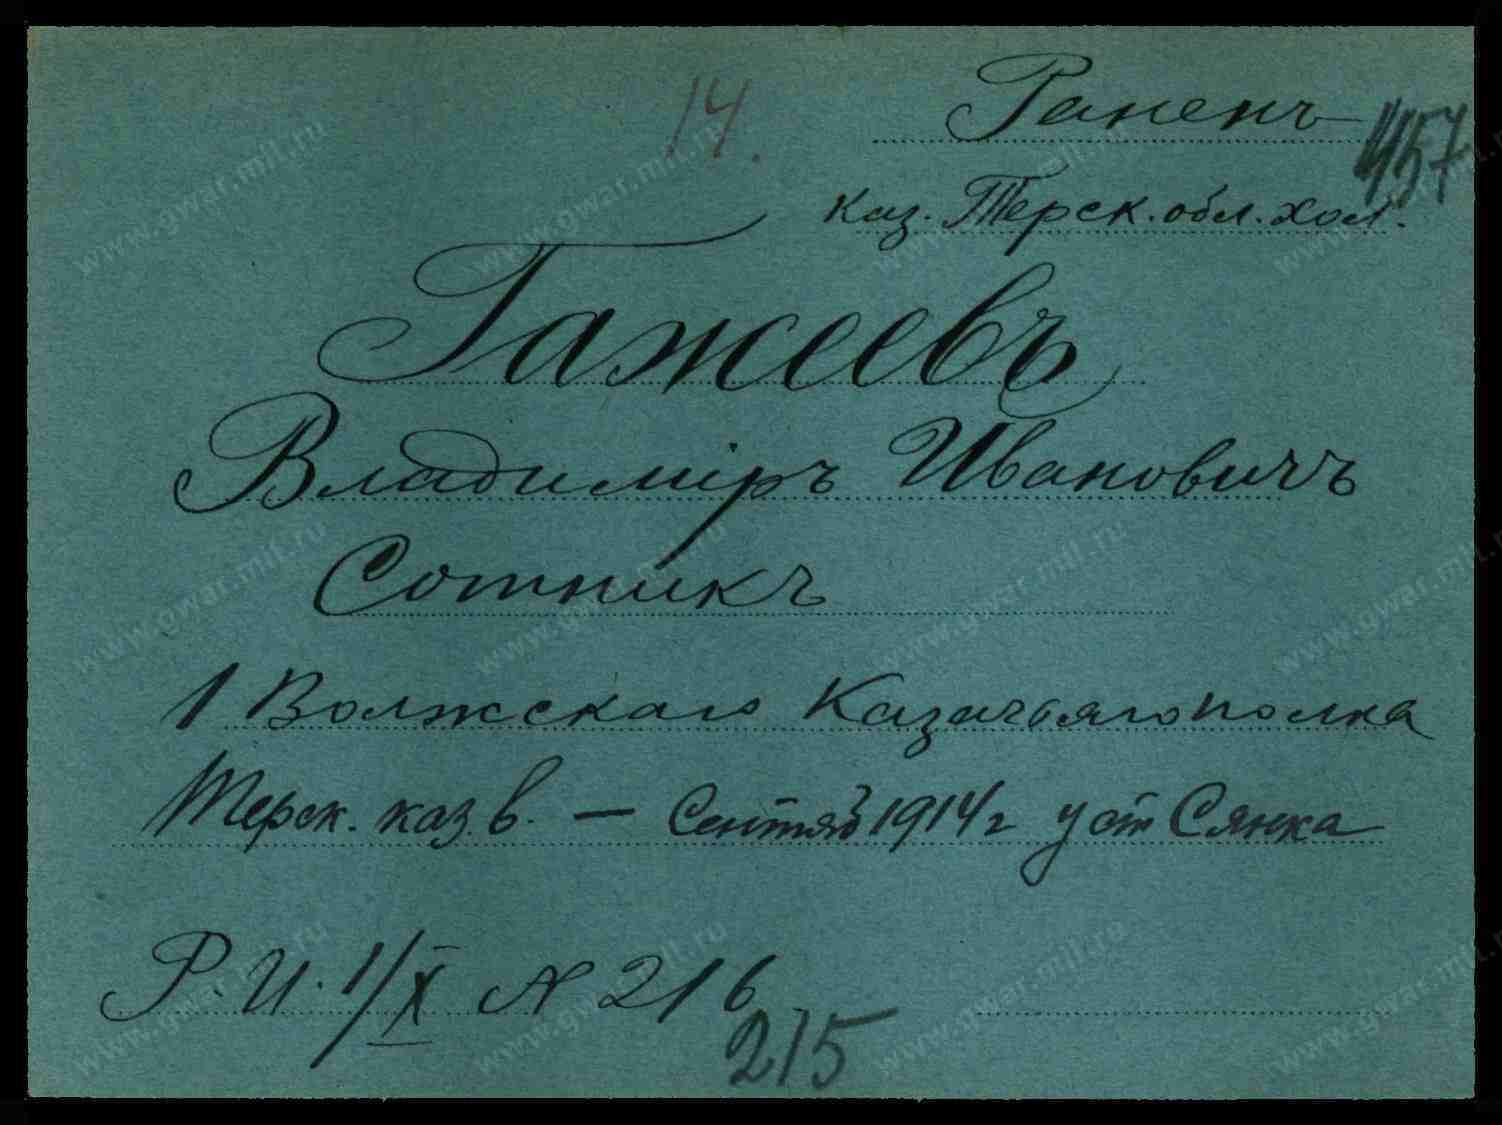 14.
Раненъ
457
Каз. Терск. обл. хол.
Гажеевъ
Владиміръ Ивановичъ
Сотникъ
1 Волжскаго Казачьяго полка
Терск. каз. в. — Сентяб 1914 г у ст Сянка
Р. И. 1/X № 216
215
www.gwar.mil.ru